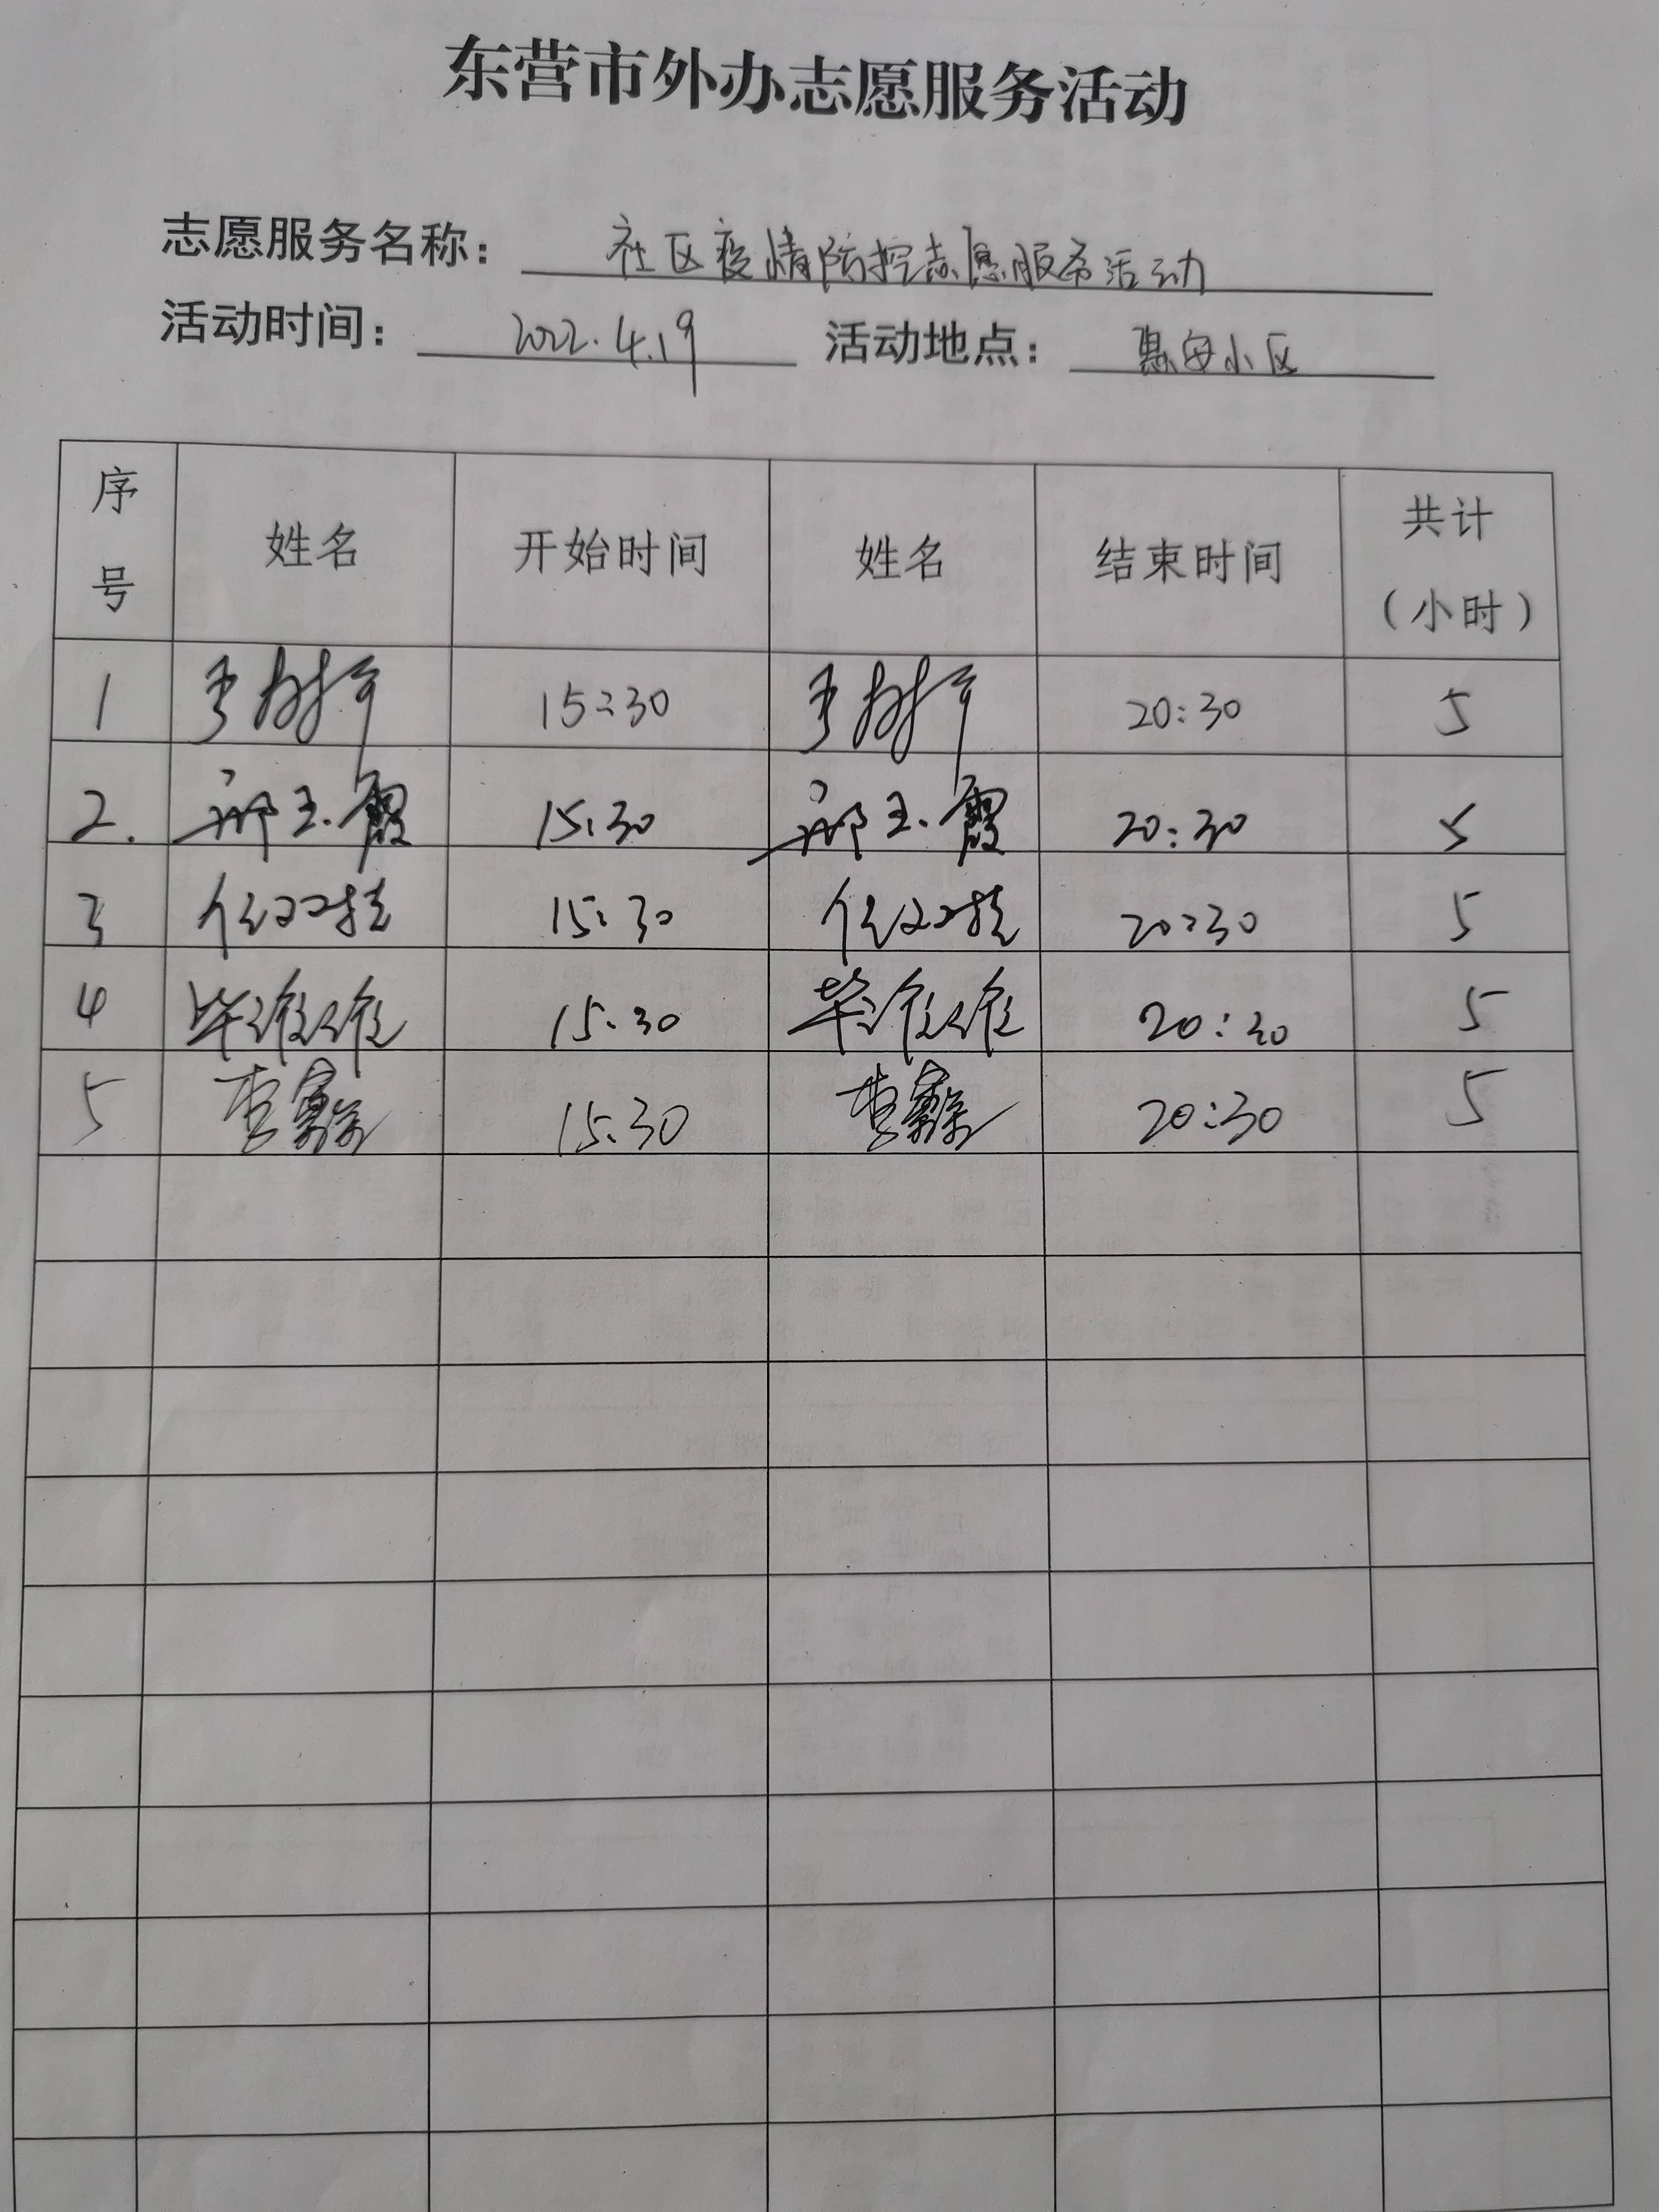 东营市外办志愿服务活动
志愿服务名称： 社区疫情防控志愿服务活动
活动时间： 2022.4.19 活动地点： 惠安小区
序号 姓名 开始时间 姓名 结束时间 共计（小时）
1 15:30 20:30 5
2. 玉霞 15:30 玉霞 20:30 5
3 任双 15:30 任双 20:30 5
4 毕维维 15:30 毕维维 20:30 5
5 李 15:30 李 20:30 5